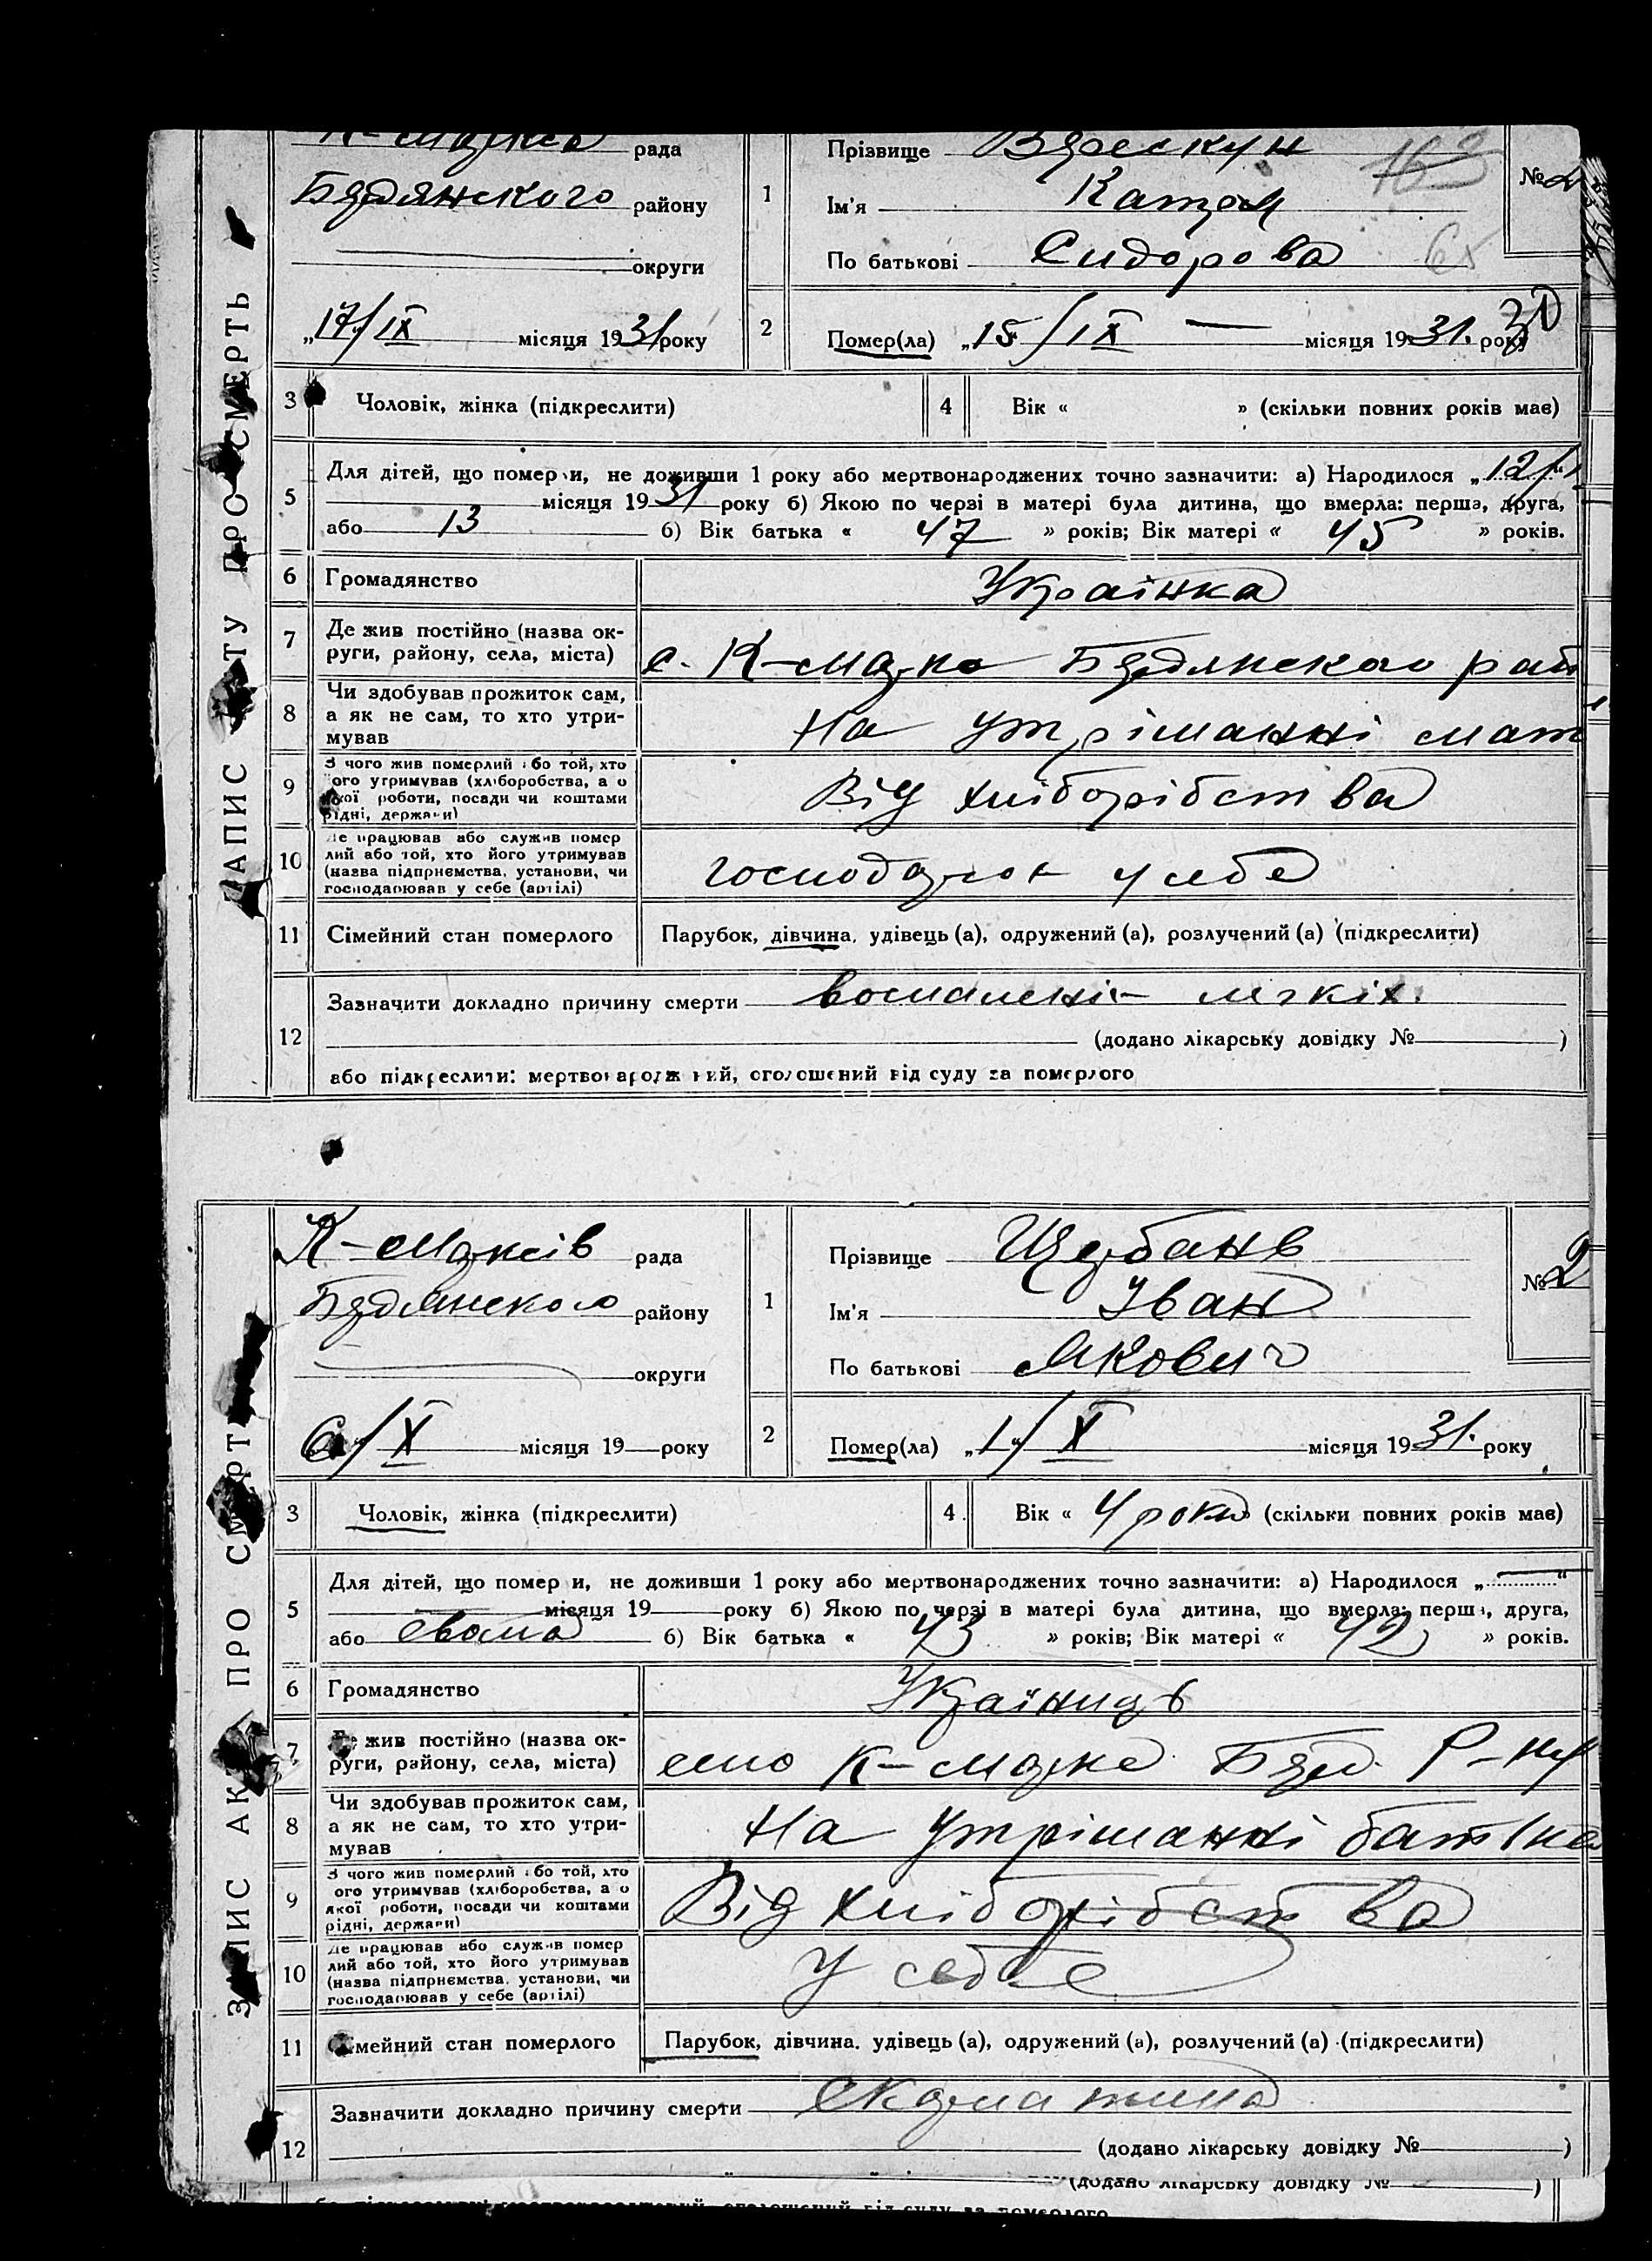 ЗАПИС АКТУ ПРО СМЕРТЬ
рада
Бердянского району
округи
"17"/IX місяця 1931 року
1
Прізвище Верескун
Ім'я Катер
По батькові Сидорова
№
2
Помер(ла) "15"/IX — місяця 1931. року
3
Чоловік, жінка (підкреслити)
4
Вік « » (скільки повних років має)
5
Для дітей, що померли, не доживши 1 року або мертвонароджених точно зазначити: а) Народилося „12/
місяця 1931 року б) Якою по черзі в матері була дитина, що вмерла: перша, друга,
або 13 б) Вік батька « 47 » років; Вік матері « 45 » років.
6
Громадянство
Українка
7
Де жив постійно (назва ок-
руги, району, села, міста)
с. К-
Бердянского рай
8
Чи здобував прожиток сам,
а як не сам, то хто утри-
мував
На утріманні мат
9
З чого жив померлий або той, хто
ого утримував (хліборобства, а о
якої роботи, посади чи коштами
рідні, держави)
Від хліборібства
10
Де працював або служив помер
лий або той, хто його утримував
(назва підприємства, установи, чи
господарював у себе (артілі)
у себе
11
Сімейний стан померлого
Парубок, дівчина, удівець (а), одружений (а), розлучений (а) (підкреслити)
12
Зазначити докладно причину смерти легкіх.
(додано лікарську довідку № )
або підкреслити: мертвонароджений, оголошений від суду за померлого
ЗАПИС АКТУ ПРО СМЕРТЬ
рада
Бердянского району
округи
6/X місяця 19 року
1
Прізвище Щербань
Ім'я Іван
По батькові Якович
№ 2
2
Помер(ла) „1"/X місяця 1931. року
3
Чоловік, жінка (підкреслити)
4
Вік « 4 роки » (скільки повних років має)
5
Для дітей, що помер и, не доживши 1 року або мертвонароджених точно зазначити: а) Народилося „ "
місяця 19 року б) Якою по черзі в матері була дитина, що вмерла: перша, друга,
або б) Вік батька « 43 » років; Вік матері « 42 » років.
6
Громадянство
Українець
7
Де жив постійно (назва ок-
руги, району, села, міста)
село К- Берд. Р-ну
8
Чи здобував прожиток сам,
а як не сам, то хто утри-
мував
На утріманні батька
9
З чого жив померлий або той, хто
ого утримував (хліборобства, а о
якої роботи, посади чи коштами
рідні, держави)
Від хліборібства
10
Де працював або служив помер
лий або той, хто його утримував
(назва підприємства, установи, чи
господарював у себе (артілі)
У себе
11
Сімейний стан померлого
Парубок, дівчина, удівець (а), одружений (а), розлучений (а) (підкреслити)
12
Зазначити докладно причину смерти Скарлатина
(додано лікарську довідку № )
(додано лікарську довідку № )